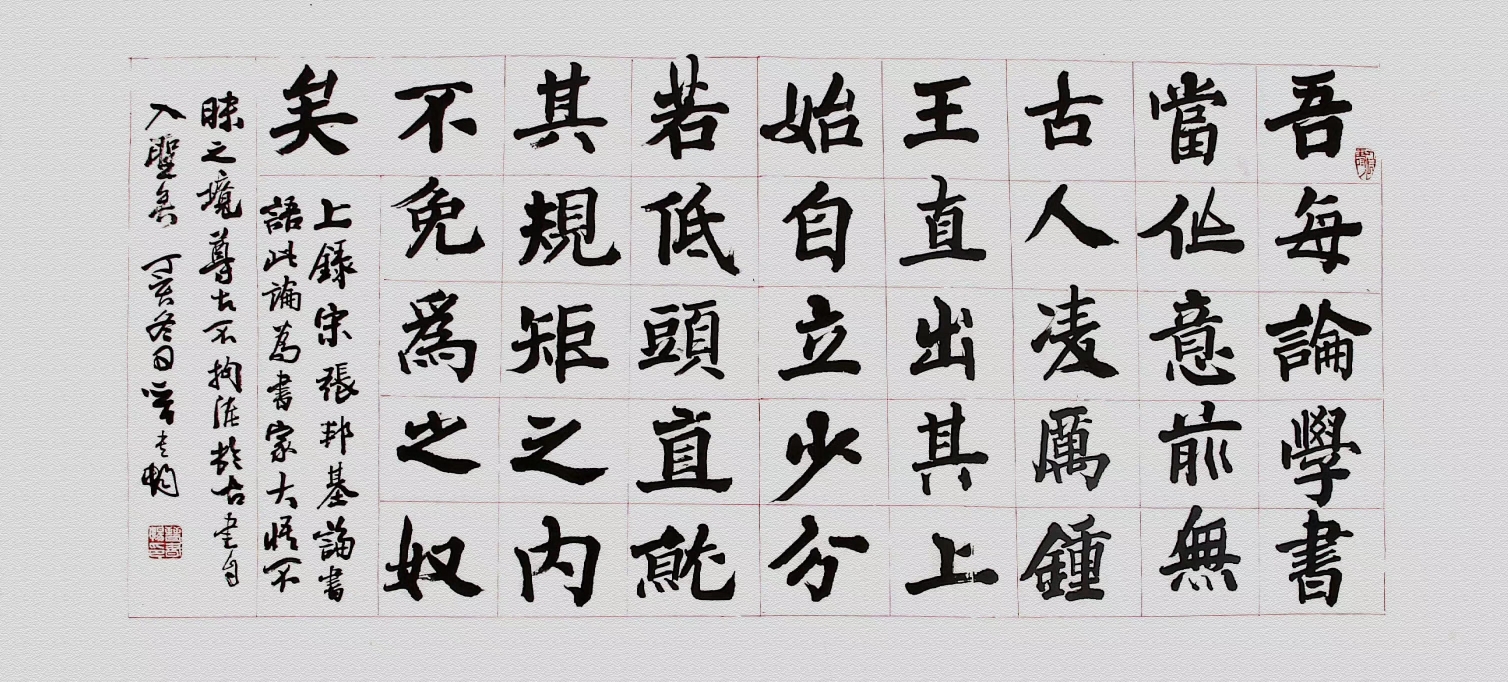 吾每論學書
當作意前無
古人凌厲鍾
王直出其上
始自立少分
若低頭直就
其規矩之內
不免為之奴
矣
上錄宋張邦基論書
語此論為書家大悟不
昧之境尊古不拘泥於古書自
入聖矣丁亥冬月